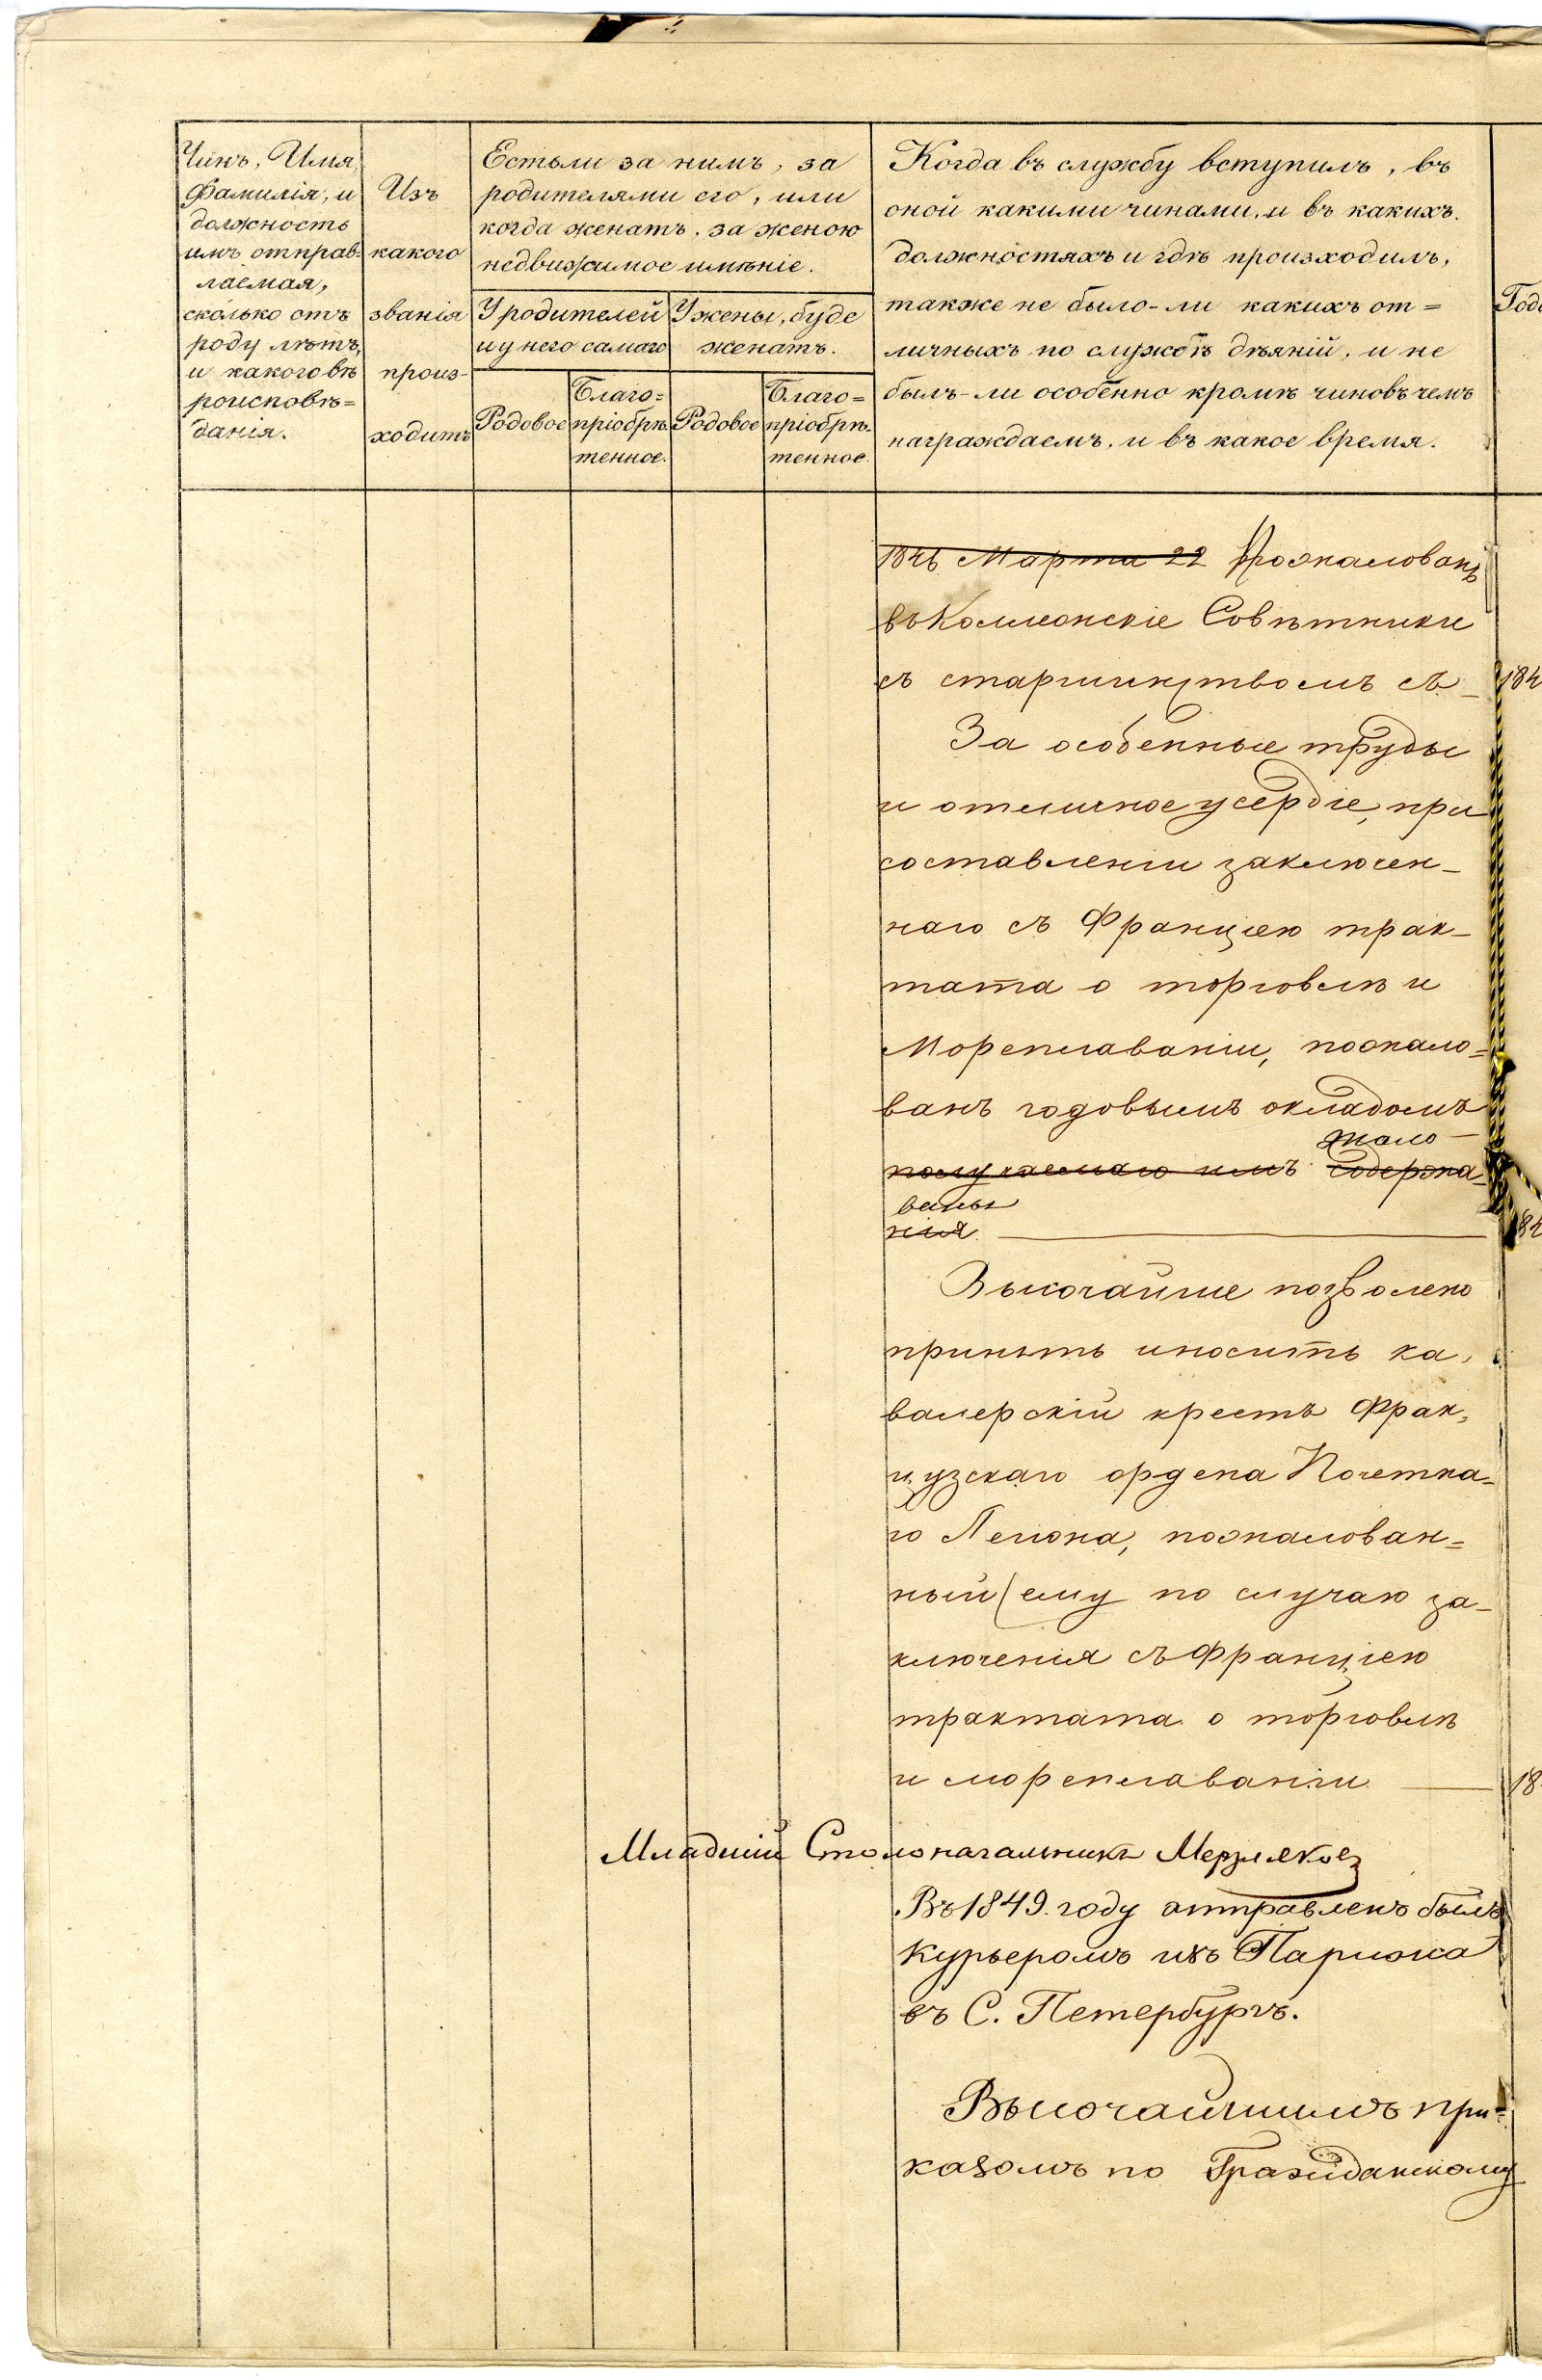 Чинъ, Имя,
Фамилія, и
должность
имъ отправ=
ляемая,
сколько отъ
роду лѣтъ,
и какого вѣ
роисповѣ=
данія.
Изъ
какого
званія
произ-
ходитъ
Естьли за нимъ, за
родителями его, или
когда женатъ, за женою
недвижимое имѣніе.
У родителей
и у него самаго
У жены, буде
женатъ.
Родовое
Благо=
пріобрѣ-
тенное.
Родовое
Благо=
пріобрѣ-
тенное.
Когда въ службу вступилъ, въ
оной какими чинами, и въ какихъ
должностяхъ и гдѣ произходилъ,
также не было-ли какихъ от=
личныхъ по службѣ дѣяній, и не
былъ-ли особенно кромѣ чиновъ чемъ
награждаемъ, и въ какое время.
1846 Марта 22 Пожалованъ
въ Коллежскіе Совѣтники
съ старшинствомъ съ
184
За особенные труды
и отличное усердіе, при
составленіи заключен-
наго съ Франціею трак-
тата о торговлѣ и
Мореплаваніи, пожало=
ванъ годовымъ окладомъ
жало-
получаемаго имъ содержа-
ванья
нія
184
Высочайше позволено
принять и носить ка-
валерскій крестъ Фран-
цузскаго ордена Почетна-
го Легіона, пожалован=
ный ему по случаю за-
ключенія съ Франціею
трактата о торговлѣ
и мореплаваніи
18
Младшій Столоначальникъ Мерзляковъ
Въ 1849 году отправленъ былъ
курьеромъ изъ Парижа
въ С. Петербургъ.
Высочайшимъ при=
казомъ по Гражданскому